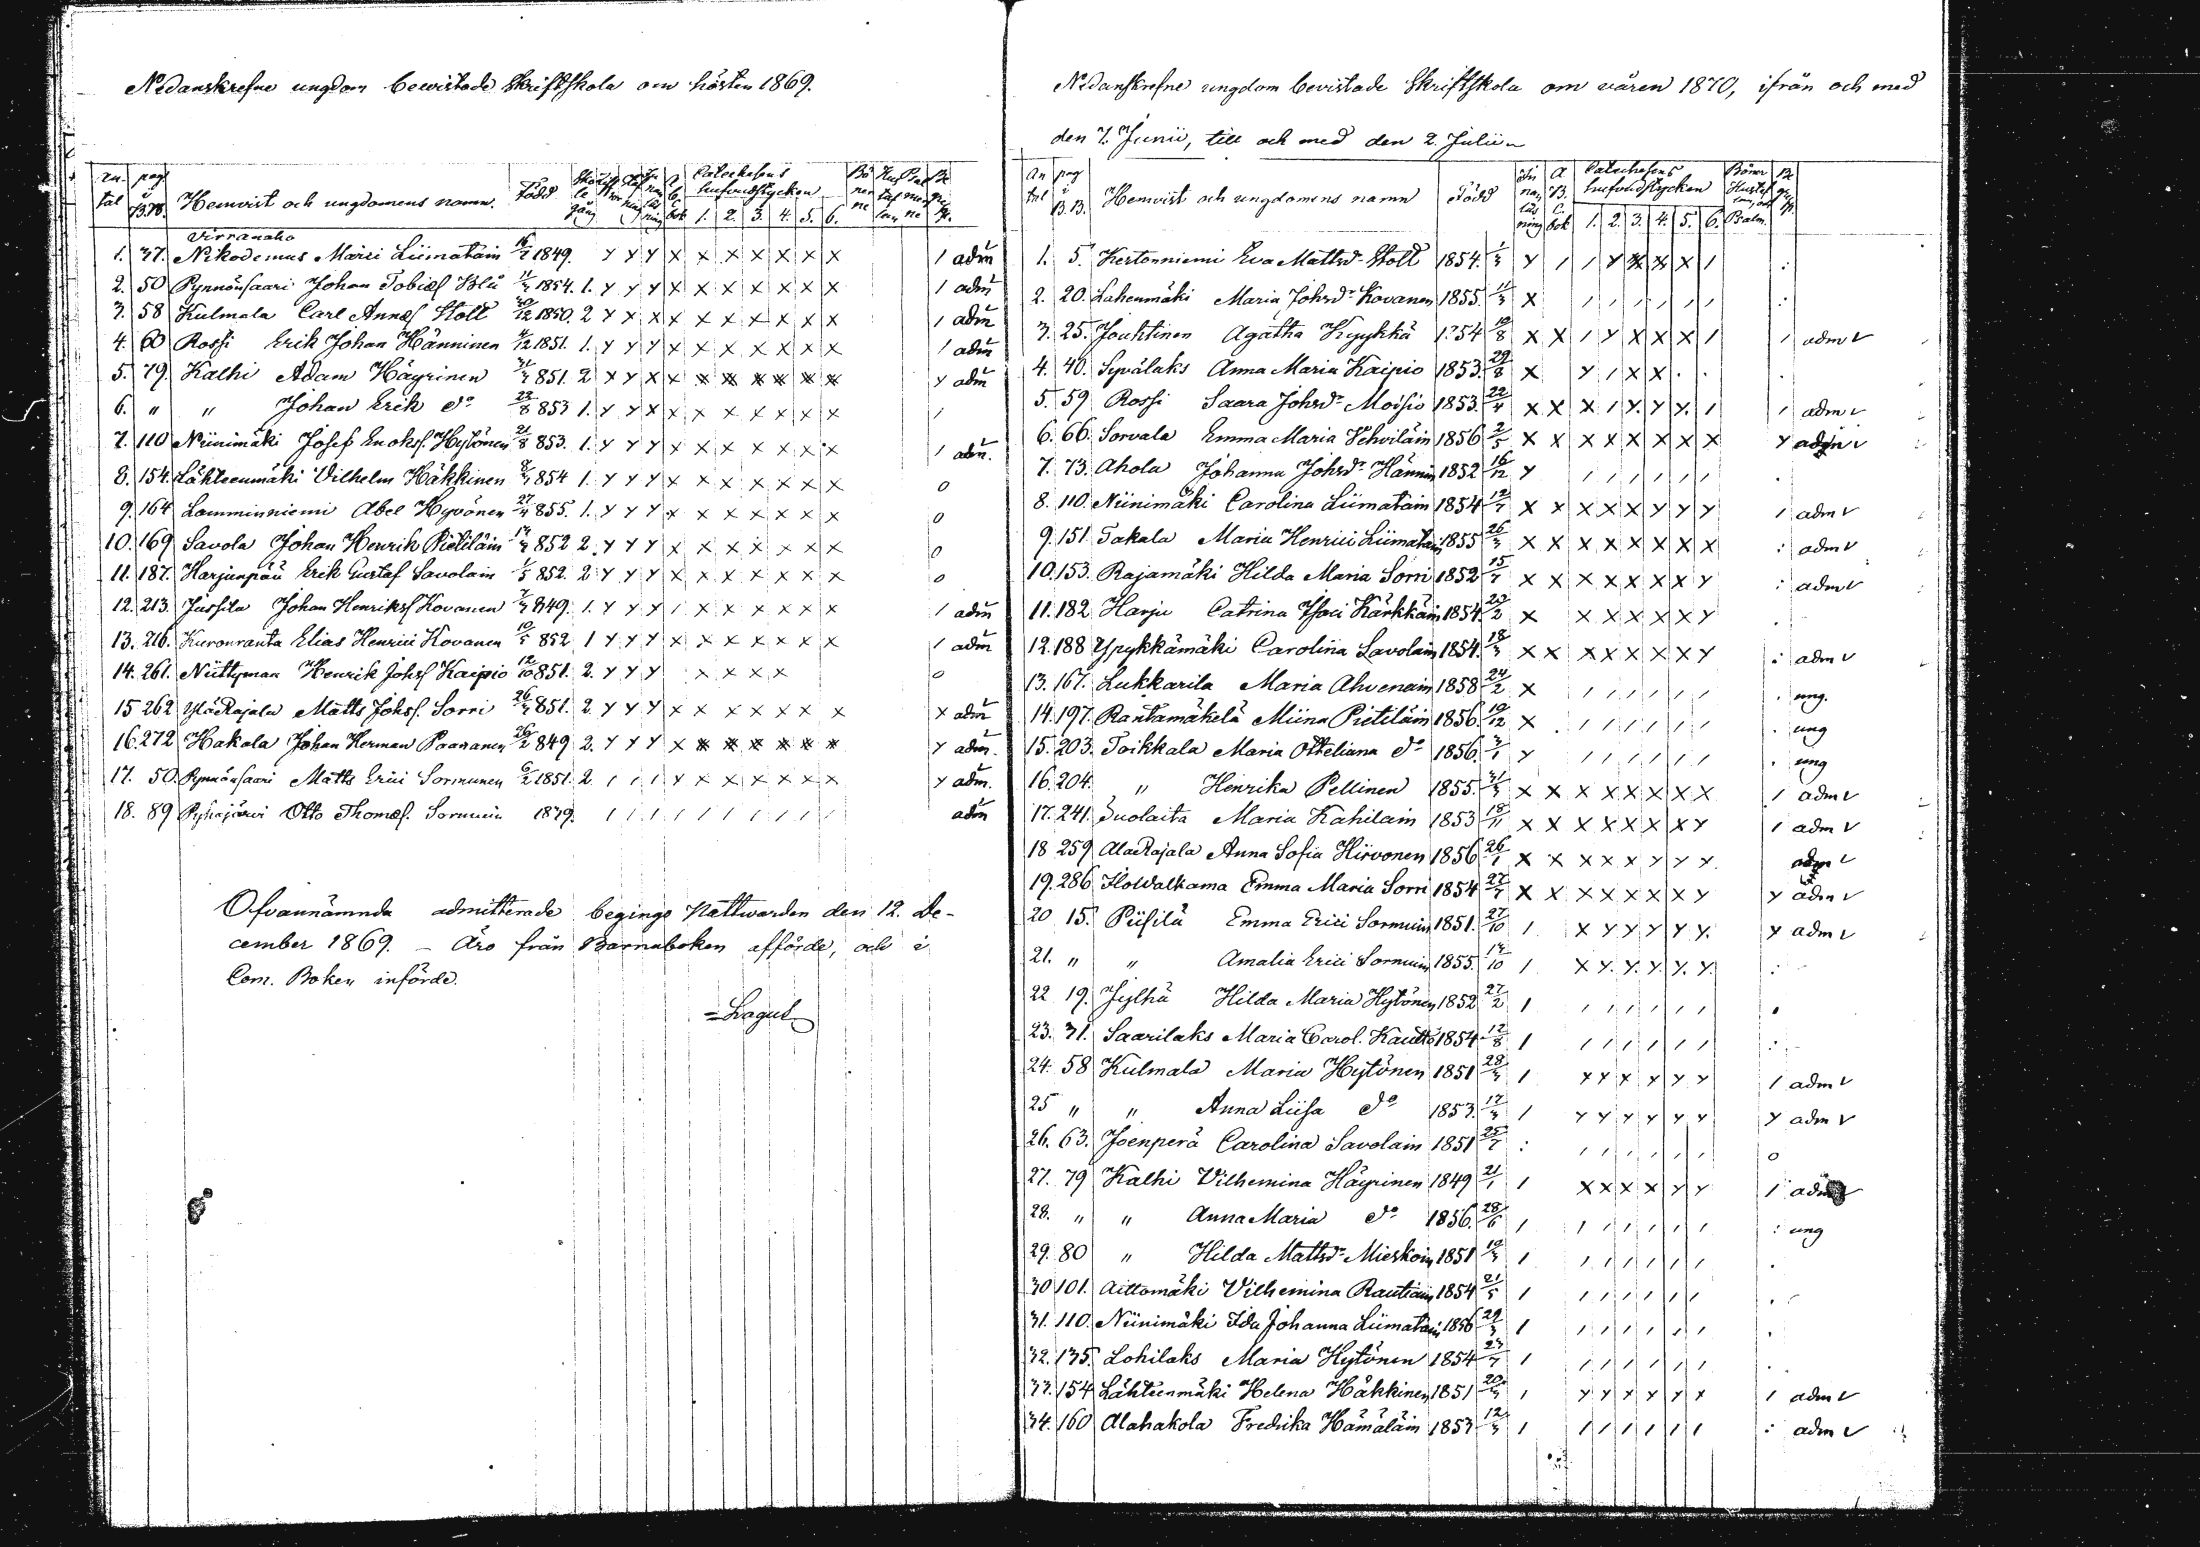 Nedanskrefne ungdom bewistade Skriftskola om hösten 1869.
an- tal pag. i B.B. Hemvist och ungdomens namn. Född Catechesens hufvudstycken 1. 2. 3. 4. 5. 6.
Virranaho
1. 37. Nikodemus Marci Liimatain 1849. y y y x x x x x x x 1 adm
2. 50 Pynnönsaari Johan Tobiæs Blå 1854. 1. y y y x x x x x x x 1 adm
3. 58 Kulmala Carl Annæs Stolt 1850. 2 y x x x x x x x x x 1 adm
4. 60 Rossi Erik Johan Hänninen 1851. 1. y y y x x x x x x x 1 adm
5. 79. Kalhi Adam Häyrinen 851. 2 x y x x x x x x x x y adm
6. " " Johan Erik do 23/8 853 1. y y x x x x x x x x 1
7. 110 Niinimäki Josef Enoks. Hytönen 21/8 853. 1. y y y x x x x x x x 1 adm.
8. 154. Lähteenmäki Vilhelm Häkkinen 854 1. y y y x x x x x x x 0
9. 164 Lamminniemi Abel Hyvönen 855. 1. y y y x x x x x x x 0
10. 169 Savola Johan Henrik Pietiläin 852 2. y y y x x x x x x x 0
11. 187. Harjunpää Erik Gustaf Savolain 1/5 852. 2 y y y x x x x x x x 0
12. 213. Jussila Johan Henriks. Kovanen 849. 1. y y y 1 x x x x x x 1 adm
13. 216. Kuvonranta Elias Henrici Kovanen 10/5 852 1 y y y x x x x x x x 1 adm
14. 261. Niittyman Henrik Johs. Kaipio 12/10 851. 2. y y y x x x x 0
15 262 YläRajala Matts Johs. Sorri 851. 2. y y y x x x x x x x x adm
16. 272 Hakala Johan Herman Paavanen 26/2 849 2. y y y x x x x x x x y adm.
17. 50. Pynnönsaari Matts Erici Sormunen 6/2 1851. 2 1 1 1 y x x x x x x y adm.
18. 89 Pyhäjärvi Otto Thomæs. Sormuin 1839. 1 1 1 1 1 1 1 1 1 1 adm
Ofvannämnda admitterade begingo Nattwarden den 12. De-
cember 1869. – Äro från Barnaboken afförde, och i
Com. Boken införde.
=Lagus
Nedanskrefne ungdom bevistade Skriftskola om våren 1870, ifrån och med
den 7. Junii, till och med den 2. Julii
An tal pag i B.B. Hemvist och ungdomens namn Född Innan läsning A B. C. bok Catechesens hufvudstycken 1. 2. 3. 4. 5. 6.
1. 5. Kertonniemi Eva Mattsdr Stolt 1854. y 1 1 y x x x 1 :
2. 20. Lahenmäki Maria Johsdr Kovanen 1855. x 1 1 1 1 1 1 :
3. 25. Jouhtinen Agatha Kyykkä 1854 19/8 x x 1 y x x x 1 1 adm v
4. 40. Syvälaks Anna Maria Kaipio 1853. 29/8 x y 1 x x . . .
5. 59 Rossi Saara Johsdr Moisio 1853. 22/4 x x x 1 y. y y. 1 1 adm v
6. 66. Sorvala Emma Maria Vehviläin 1856 2/5 x x x x x x x x y adm v
7. 73. Ahola Johanna Johsdr Hännin 1852 16/12 y 1 1 1 1 1 1 .
8. 110. Niinimäki Carolina Liimatain 1854 12/7 x x x x x y y y 1 adm v
9. 151. Takala Maria Henrici Liimatain 1855 x x x x x x x x : adm v
10. 153. Rajamäki Hilda Maria Sorri 1852 15/7 x x x x x x x y : adm v
11. 182. Harju Catrina Isaci Kärkkäin 1854. x x x x x x y .
12. 188 Ypykkämäki Carolina Savolain 1854. x x x x x x x y : adm v
13. 167. Lukkarila Maria Ahvenain 1858 24/2 x 1 1 1 1 1 1 . ung.
14. 197. Rantamäkelä Miina Pietiläin 1856. 19/12 x 1 1 1 1 1 1 . ung
15. 203. Toikkala Maria Otteliana do 1856. y 1 1 1 1 1 1 . ung
16. 204. " Henrika Pellinen 1855. x x x x x x x x 1 adm v
17. 241. Suolaita Maria Kahilain 1853 18/11 x x x x x x x y 1 adm v
18 259 AlaRajala Anna Sofia Hirvonen 1856 26/1 x x x x x y y y adm v
19. 286 Howalkama Emma Maria Sorri 1854 27/7 x x x x x x x y y adm v
20 15. Piisilä Emma Erici Sormuin 1851. 27/10 1 x y y y y y. y adm v
21. " " Amalia Erici Sormuin 1855. 1 x y. y. y. y. y. :
22 19. Jylhä Hilda Maria Hytönen 1852 27/2 1 1 1 1 1 1 1 .
23. 31. Saarilaks Maria Carol. Kautto 1854 12/8 1 1 1 1 1 1 1 :
24. 58 Kulmala Maria Hytönen 1851 1 y y x y y y 1 adm v
25 " " Anna Liisa do 1853. 1 y y y y y y y adm v
26. 63. Joenperä Carolina Savolain 1851 25/7 : 1 1 1 1 1 1 0
27. 79 Kalhi Vilhemina Häyrinen 1849 21/1 1 x x x x y y 1 adm
28. " " Anna Maria do 1856. 28/6 1 1 1 1 1 1 1 : ung
29. 80 " Hilda Mattsdr Mieskoin 1851 1 1 1 1 1 1 1 .
30 101. Aittomäki Vilhemina Rautiain 1854 21/5 1 1 1 1 1 1 1 .
31. 110. Niinimäki Ida Johanna Liimatain 1856 1 1 1 1 1 1 1 .
32. 135. Lohilaks Maria Hytönen 1854 1 1 1 1 1 1 1 .
33. 154 Lähteenmäki Helena Häkkinen 1851 1 y y y y y y 1 adm v
34. 160 Alahakola Fredrika Hämäläin 1853 1 1 1 1 1 1 1 : adm v